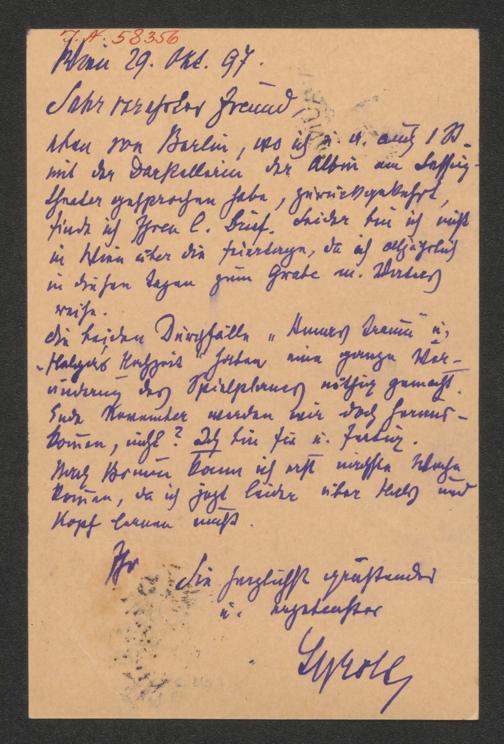 J. N. 58356
Wien 29. Okt. 97.
Sehr verehrter Freund,
eben von Berlin, wo ich u. a. auch
mit der Darstellerin der Albin am Lessing-
theater gesprochen habe, zurückgekehrt,
finde ich Ihren l. Brief. Leider bin ich nicht
in Wien über die Feiertage, da ich alljährlich
in diesen Tagen zum Grabe m. Vaters
reise.
Die beiden Durchfälle „ Traum" u.
„Helgas Hochzeit" haben eine ganze Ver-
änderung des Spielplanes nöthig gemacht.
Ende November werden wir doch heraus-
kommen, nicht? Ich bin fix u. fertig.
Nach Brünn kann ich erst nächste Woche
kommen, da ich jetzt leider über Hals und
Kopf lernen muß.
Ihr
Sie herzlichst grüßender
u. ergebenster